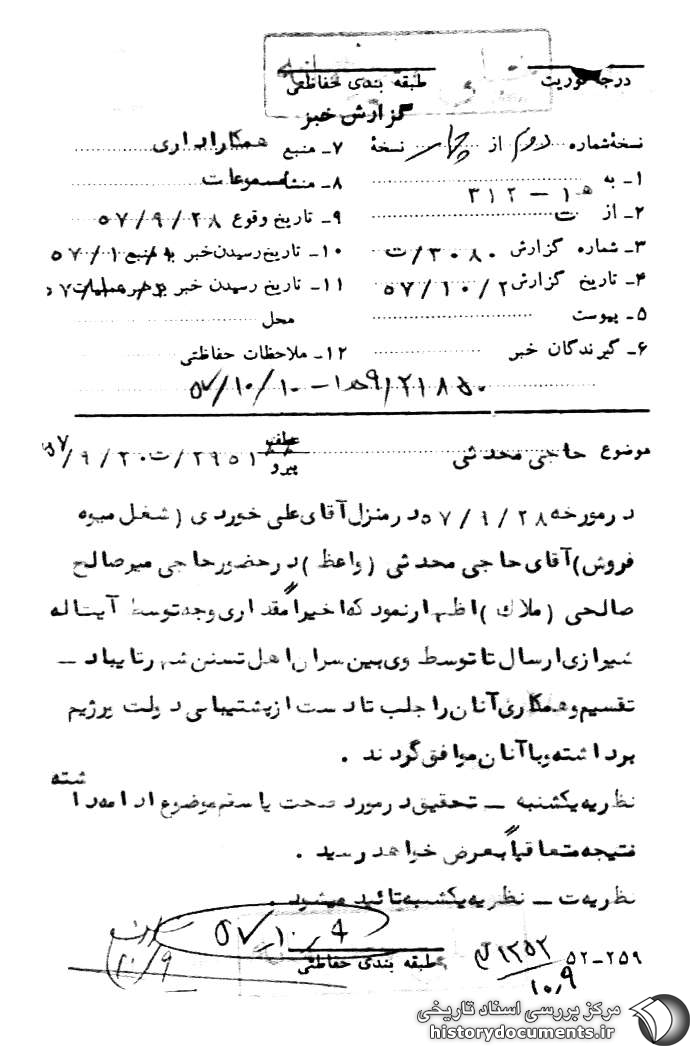 درجه فوریت
طبقه بندی حفاظتی
گزارش خبر
نسخهٔ شماره دوم از چهار نسخهٔ
۷ـ منبع همکار اداری
۱ـ به ۳۱۲ – ۱ هـ
۸ـ منشأ مسموعات
۲ـ از ت
۹ـ تاریخ وقوع ۵۷/۹/۲۸
۳ـ شماره گزارش ۳۰۸۰/ت
۱۰ـ تاریخ رسیدن خبر به منبع
۴ـ تاریخ گزارش ۵۷/۱۰/۲
۱۱ـ تاریخ رسیدن خبر به رهبر عملیات
۵ـ پیوست
محل
۶ـ گیرندگان خبر
۱۲ـ ملاحظات حفاظتی
۵۷/۱۰/۱۰
موضوع حاجی محدثی
عطف
پیرو
۲۹۵۱/ت ۵۷/۹/۲۰
در مورخه ۵۷/۹/۲۸ در منزل آقای علی خوردی (شغل میوه
فروش) آقای حاجی محدثی (واعظ) در حضور حاجی میر صالح
صالحی (ملاک) اظهار نمود که اخیراً مقداری وجه توسط آیت اله
شیرازی ارسال تا توسط وی بین سران اهل تسنن شهر تایباد ـ
تقسیم و همکاری آنان را جلب تا دست از پشتیبانی دولت و رژیم
برداشته و با آنان موافق گردند .
نظریه یکشنبه ـ تحقیق در مورد صحت یا سقم موضوع ادامه داشته
نتیجه متعاقباً بعرض خواهد رسید .
نظریه ت ـ نظریه یکشنبه تائید میشود .
۵۷/۱۰/۴
۱۰/۹
طبقه بندی حفاظتی
۱۳۵۲
۱۰/۹
۵۲-۲۵۹
مرکز بررسی اسناد تاریخی
historydocuments.ir